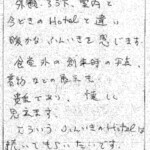 外観、ろうか、室内と
今どきのHotelと違い
暖かなふんいきを感じます。
食堂の
書物などの展示も
豊富であり、
見えます。
こういうふんいきのHotelは
続いてもらいたいです。